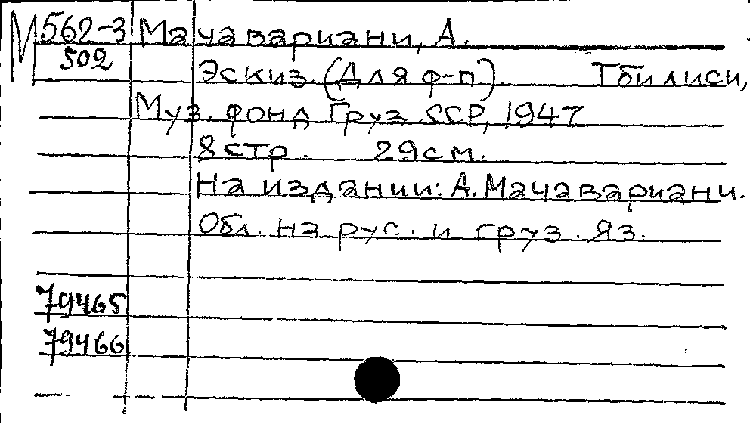 М 562-3 Мачавариани, А.
502
Эскиз. (Для ф-п). Тбилиси,
Муз. фонд Груз SSР, 1947
8 стр. 29 см.
На издании: А. Мачавариани.
Обл. на рус. и груз. яз.
79465
79466